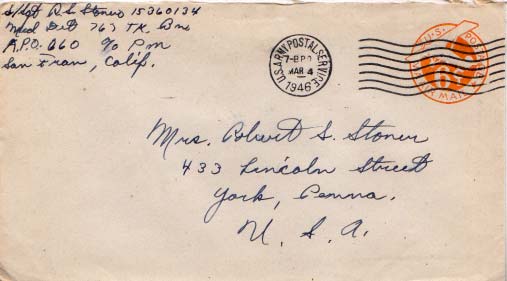 S/Sgt R.S. Stoner 15360134
Med Det 767 TK. Bn
A.P.O. 660 % P m
San Fran, Calif.
U.S. ARMY POSTAL SERVICE
MAR 4
1946
U.S. POSTAGE
AIR MAIL
Mrs. Robert S. Stoner
433 Lincoln Street
York, Penna.
U. S. A.